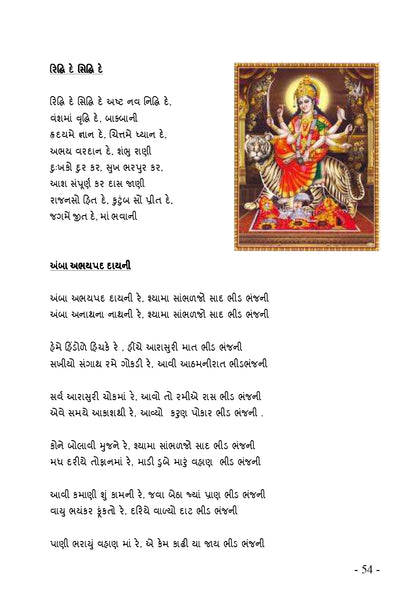 રિદ્ધિ દે સિદ્ધિ દે
રિદ્ધિ દે સિદ્ધિ દે અષ્ટ નવ નિદ્ધિ દે,
વંશમાં વૃદ્ધિ દે, બાકબાની
હ્રદયમે જ્ઞાન દે, ચિત્તમે ધ્યાન દે,
અભય વરદાન દે, શંભુ રાણી
દુઃખકો દુર કર, સુખ ભરપુર કર,
આશ સંપૂર્ણ કર દાસ જાણી
રાજનસો હિત દે, કુટુંબ સોં પ્રીત દે,
જગમેં જીત દે, માં ભવાની
અંબા અભયપદ દાયની
અંબા અભયપદ દાયની રે, શ્યામા સાંભળજો સાદ ભીડ ભંજની
અંબા અનાથના નાથની રે, શ્યામા સાંભળજો સાદ ભીડ ભંજની
હેમે હિંડોળે હિચકે રે , હીંચે આરાસુરી માત ભીડ ભંજની
સખીયો સંગાથ રમે ગોકડી રે, આવી આઠમનીરાત ભીડભંજની
સર્વ આરાસુરી ચોકમાં રે, આવો તો રમીએ રાસ ભીડ ભંજની
એવે સમયે આકાશથી રે, આવ્યો  કરુણ પોકાર ભીડ ભંજની .
કોને બોલાવી મુજને રે, શ્યામા સાંભળજો સાદ ભીડ ભંજની
મધ દરીયે તોફાનમાં રે, માડી ડુબે મારું વહાણ  ભીડ ભંજની
આવી કમાણી શું કામની રે, જવા બેઠા જ્યાં પ્રાણ ભીડ ભંજની
વાયુ ભયંકર ફૂંકતો રે, દરિયે વાળ્યો દાટ ભીડ ભંજની
પાણી ભરાયું વહાણ માં રે, એ કેમ કાઢી યા જાય ભીડ ભંજની
- 54 -